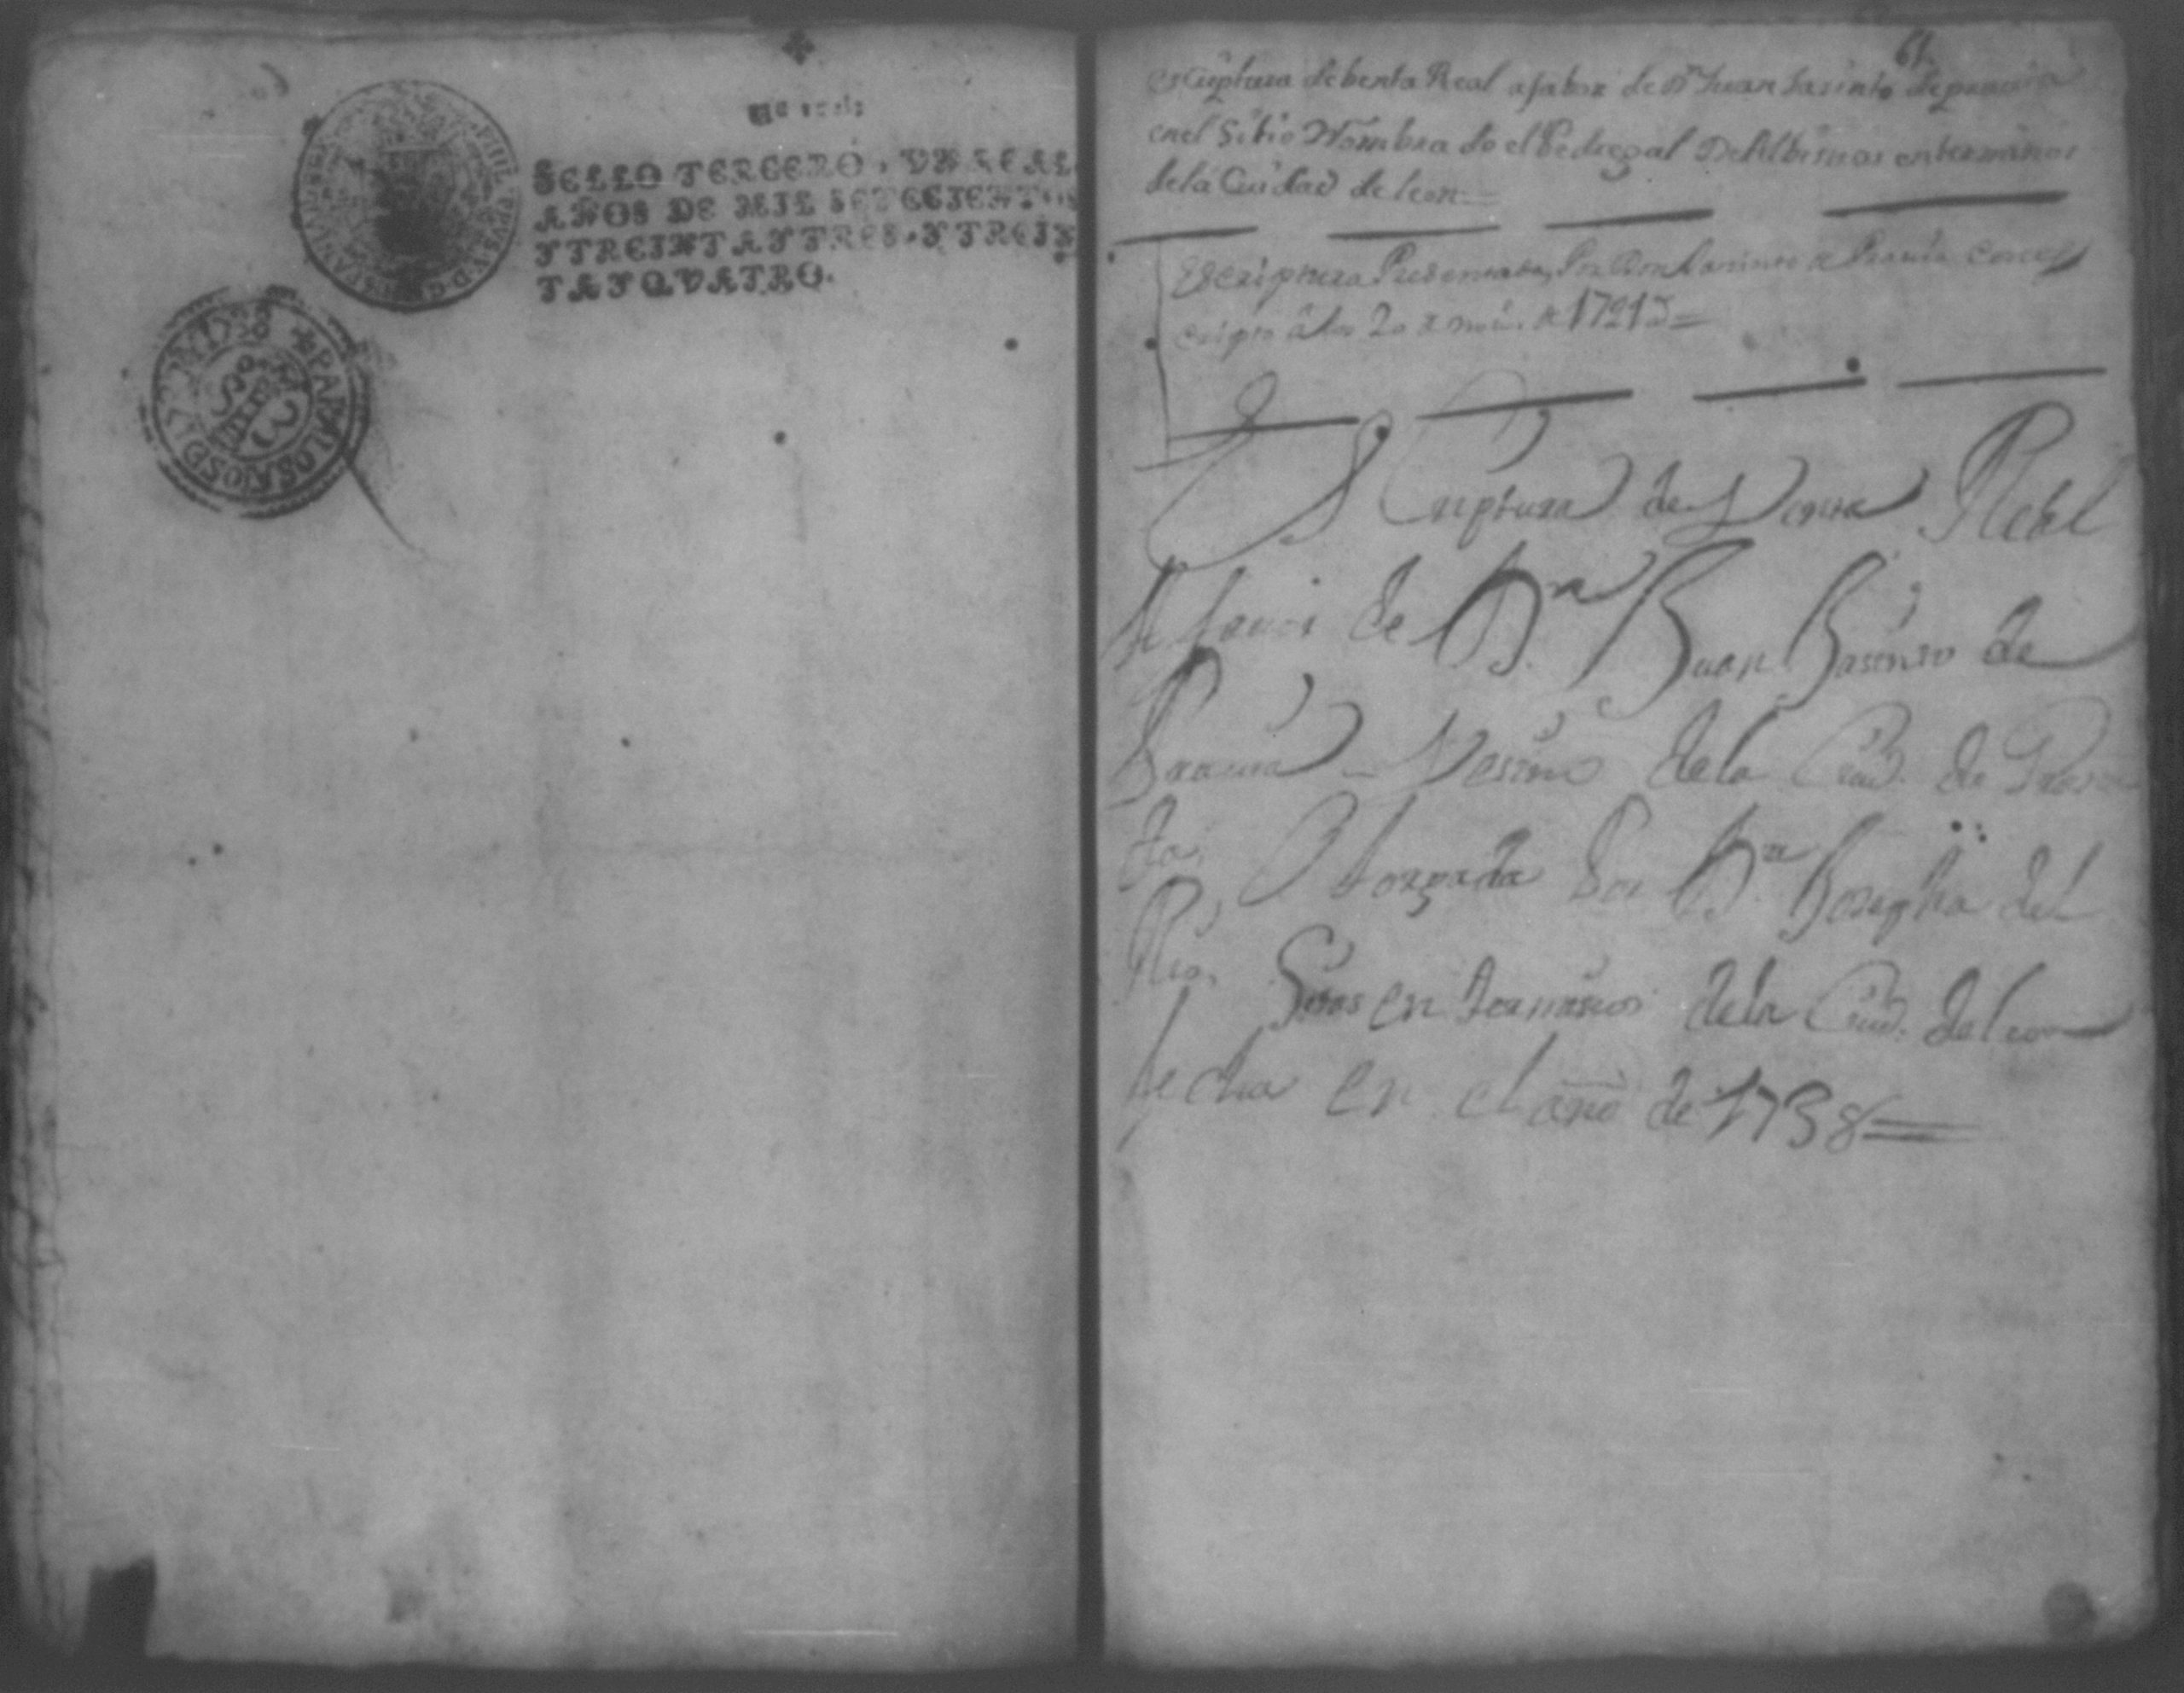 60
Un real
SELLO TERCERO, VN REAL
AÑOS DE MIL SETECIENTOS
Y TREINTA Y TRES, Y TREIN
TA Y QVATRO.
PHILIPPVS V D G HISPANIAR
PARA LOS AÑOS D 1738
61
escriptura de benta Real a fabor de Dn Juan Jasinto de
en el Sitio Nombra do el Pedregal en terminos
de la Ciudad de leon
Escriptura Presentada, Por Don Jasinto
20 de 1721
Escriptura de Venta Real
A favor de Dn Juan Jasinto de
Vesino de la Ciud. de
da, Otorgada Por Da Josepha del
Rio, Sitas en terminos de la Ciud. de leon
fecha en el año de 1738